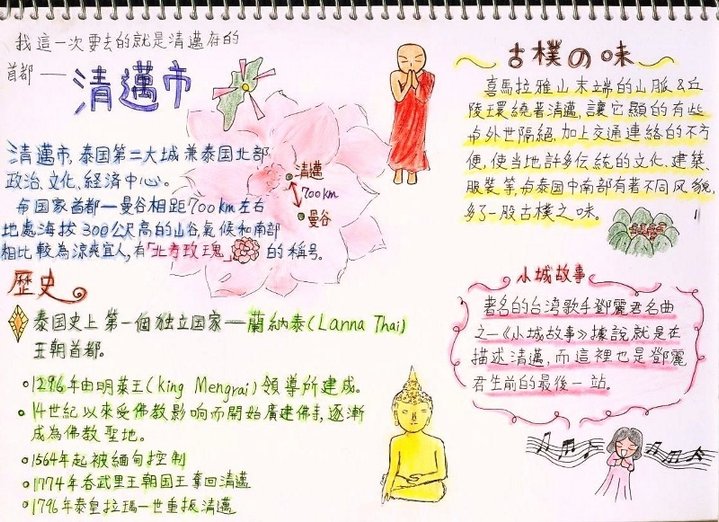 我這一次要去的就是清邁府的
首都——
清邁市
清邁市,泰国第二大城兼泰国北部
政治、文化、経濟中心。
与国家首都—曼谷相距700km左右
地處海拔300公尺高的山谷,氣候和南部
相比較為涼爽宜人,有「北方玫瑰」的稱号。
清邁
700km
曼谷
歷史
泰国史上第一個独立国家—蘭納泰(Lanna Thai)
王朝首都。
1296年由明萊王(King Mengrai)領導所建成。
14世紀以來受佛教影响而開始廣建佛寺,逐漸
成為佛教聖地。
1564年起被緬甸控制
1774年吞武里王朝国王奪回清邁
1796年泰皇拉瑪一世重振清邁
古樸の味
喜馬拉雅山末端的山脈&丘
陵環繞著清邁,讓它顯的有些
与外世隔絕,加上交通連絡的不方
便,使当地許多伝統的文化、建築、
服裝等,与泰国中南部有著不同风貌,
多了一股古樸之味。
小城故事
著名的台湾歌手鄧麗君名曲
之一《小城故事》據說就是在
描述清邁,而這裡也是鄧麗
君生前的最後一站。